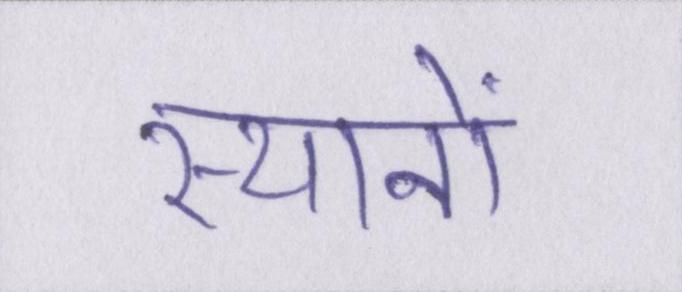 स्थानों